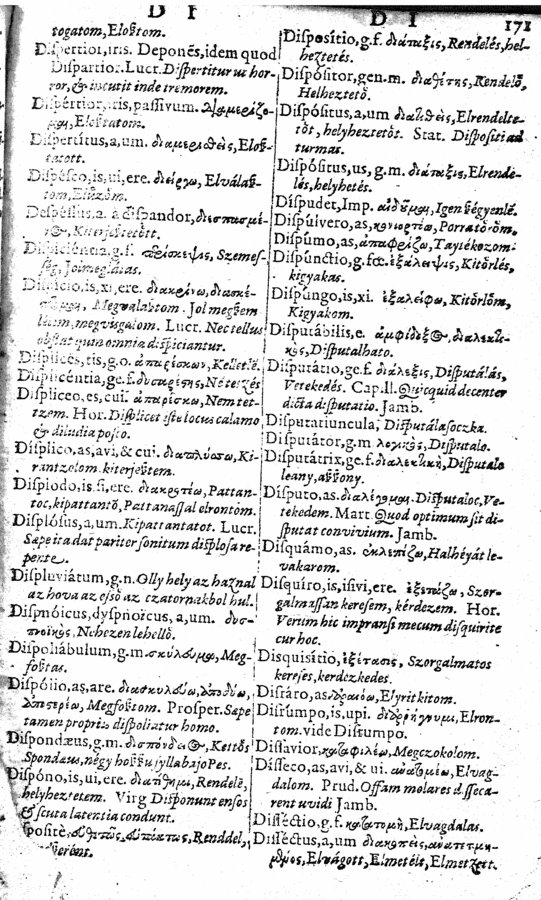 D I D I 171
togatom, Eloſztom.
Diſpertior, iris. Deponẽs, idem quod
Diſpartior. Lucr. Diſpertitur ut hor-
ror, & incutit inde tremorem.
Diſpértior, iris, paſsivum.
Eloſztatom.
Diſpertítus, a, um. διαμερισθεὶς, Eloſz-
tatott.
Diſpéſco, is, ui, ere. διείργω, Elválaſz-
tom,
Deſpéſſus, a. à diſpandor,
Kiterjeſztetõtt.
Diſpiciéntia, g.f. Szemeſ-
ſég, Joimeglátas.
Diſpicio, is, xi, ere. διακρίνω,
Megvalaſztom. Jol megſzem
lélem, megvisgalom. Lucr. Nec tellus
obſtat quin omnia diſpiciantur.
Diſplicẽs, tis, g.o. ἀπαρέσκων, Kelletlē.
Diſplicéntia, ge.f. Netetzés
Diſpliceo, es, cui. ἀπαρέσκω, Nem tet-
tzem. Hor. Diſplicet iſte locus calamo
& diludia poſco.
Díſplico, as, avi, & cui. διαπλύσσω, Ki-
rantzolom. kiterjeſztem.
Diſplodo, is, ſi, ere. Pattan-
toc, kipattantõ, Pattanaſſal elrontom.
Diſplóſus, a, um. Kipattantatot. Lucr.
Sæpe ita dat pariter ſonitum diſploſa re-
pente.
Diſpluviátum, g.n. Olly hely az haznal
az hova az eſsõ az czatornakbol hul.
Diſpnóicus, dyſpnoicus, a, um. δυσ-
πνοϊκὸς, Nehezen lehellõ.
Diſpoliábulum, g.m. Meg-
foſztas.
Diſpólio, as, are.
Megfoſztom. Proſper. Sæpe
tamen propriis diſpoliatur homo.
Diſpondæus, g.m. Kettõs
Spondæus, négy hoſzſzu ſyllabajo Pes.
Diſpóno, is, ui, ere. διατίθημι, Rendelẽ,
helyheztetem. Virg Diſponunt enſes
& ſcuta latentia condunt.
ſpositè, Renddel,

Diſpoſítio, g.f. διάταξις, Rendelés, hel-
heztetés.
Diſpóſitor, gen.m. διαθέτης, Rendelõ,
Helheztetõ.
Diſpóſitus, a, um Elrendelte-
tõt, helyheztetõt. Stat. Diſpoſiti ad
turmas.
Diſpóſitus, us, g.m. διάταξις, Elrende-
lés, helyhetés.
Díſpudet, Imp. Igen ſzégyenlē.
Diſpúlvero, as, Porratõrõm.
Diſpúmo, as, ἀπαφρίζω, Taytékozom.
Diſpúnctio, g.fœ. ἐξάλειψις, Kitõrlés,
kigyakas.
Diſpúngo, is, xi. ἐξαλείφω, Kitõrlõm,
Kigyakom.
Diſputábilis, e. διαλεκτι-
κὸς, Diſputalhato.
Diſputátio, ge.f. διάλεξις, Diſputálás,
Veteked​és. Cap. Il. Quicquid decenter
dicta diſputatio. Jamb.
Diſputatiuncula, Diſputálaſoczka.
Diſputátor, g.m λογικὸς, Diſputalo.
Diſputátrix, ge.f. διαλεκτικὴ, Diſputalo
leany, aſzſzony.
Díſputo, as. διαλέγομαι. Diſputaloc, Ve-
tekedem. Mart. Quod optimum ſit di-
ſputat convivium. Jamb.
Diſquámo, as. ἐκλεπίζω, Halhéyát le-
vakarom.
Diſquíro, is, iſivi, ere. ἐξετάζω, Szor-
galmaſſan keresem, kérdezem. Hor.
Verum hic impranſi mecum diſquirite
cur hoc.
Diſquiſítio, ἐξέτασις, Szorgalmatos
kereſes, kerdezkedes.
Diſráro, as. Elyritkitom.
Diſrumpo, is, upi. διαῤῥήγνυμι, Elron-
tom. vide Diſrumpo.
Diſſávior, καταφιλέω, Megczokolom.
Díſſeco, as, avi, & ui. Elvag-
dalom. Prud. Offam molares diſſeca-
rent uvidi Jamb.
Diſſéctio, g.f. κατατομὴ, Elvagdalas.
Diſſéctus, a, um
Elvágott, Elmetélt, Elmetzett.